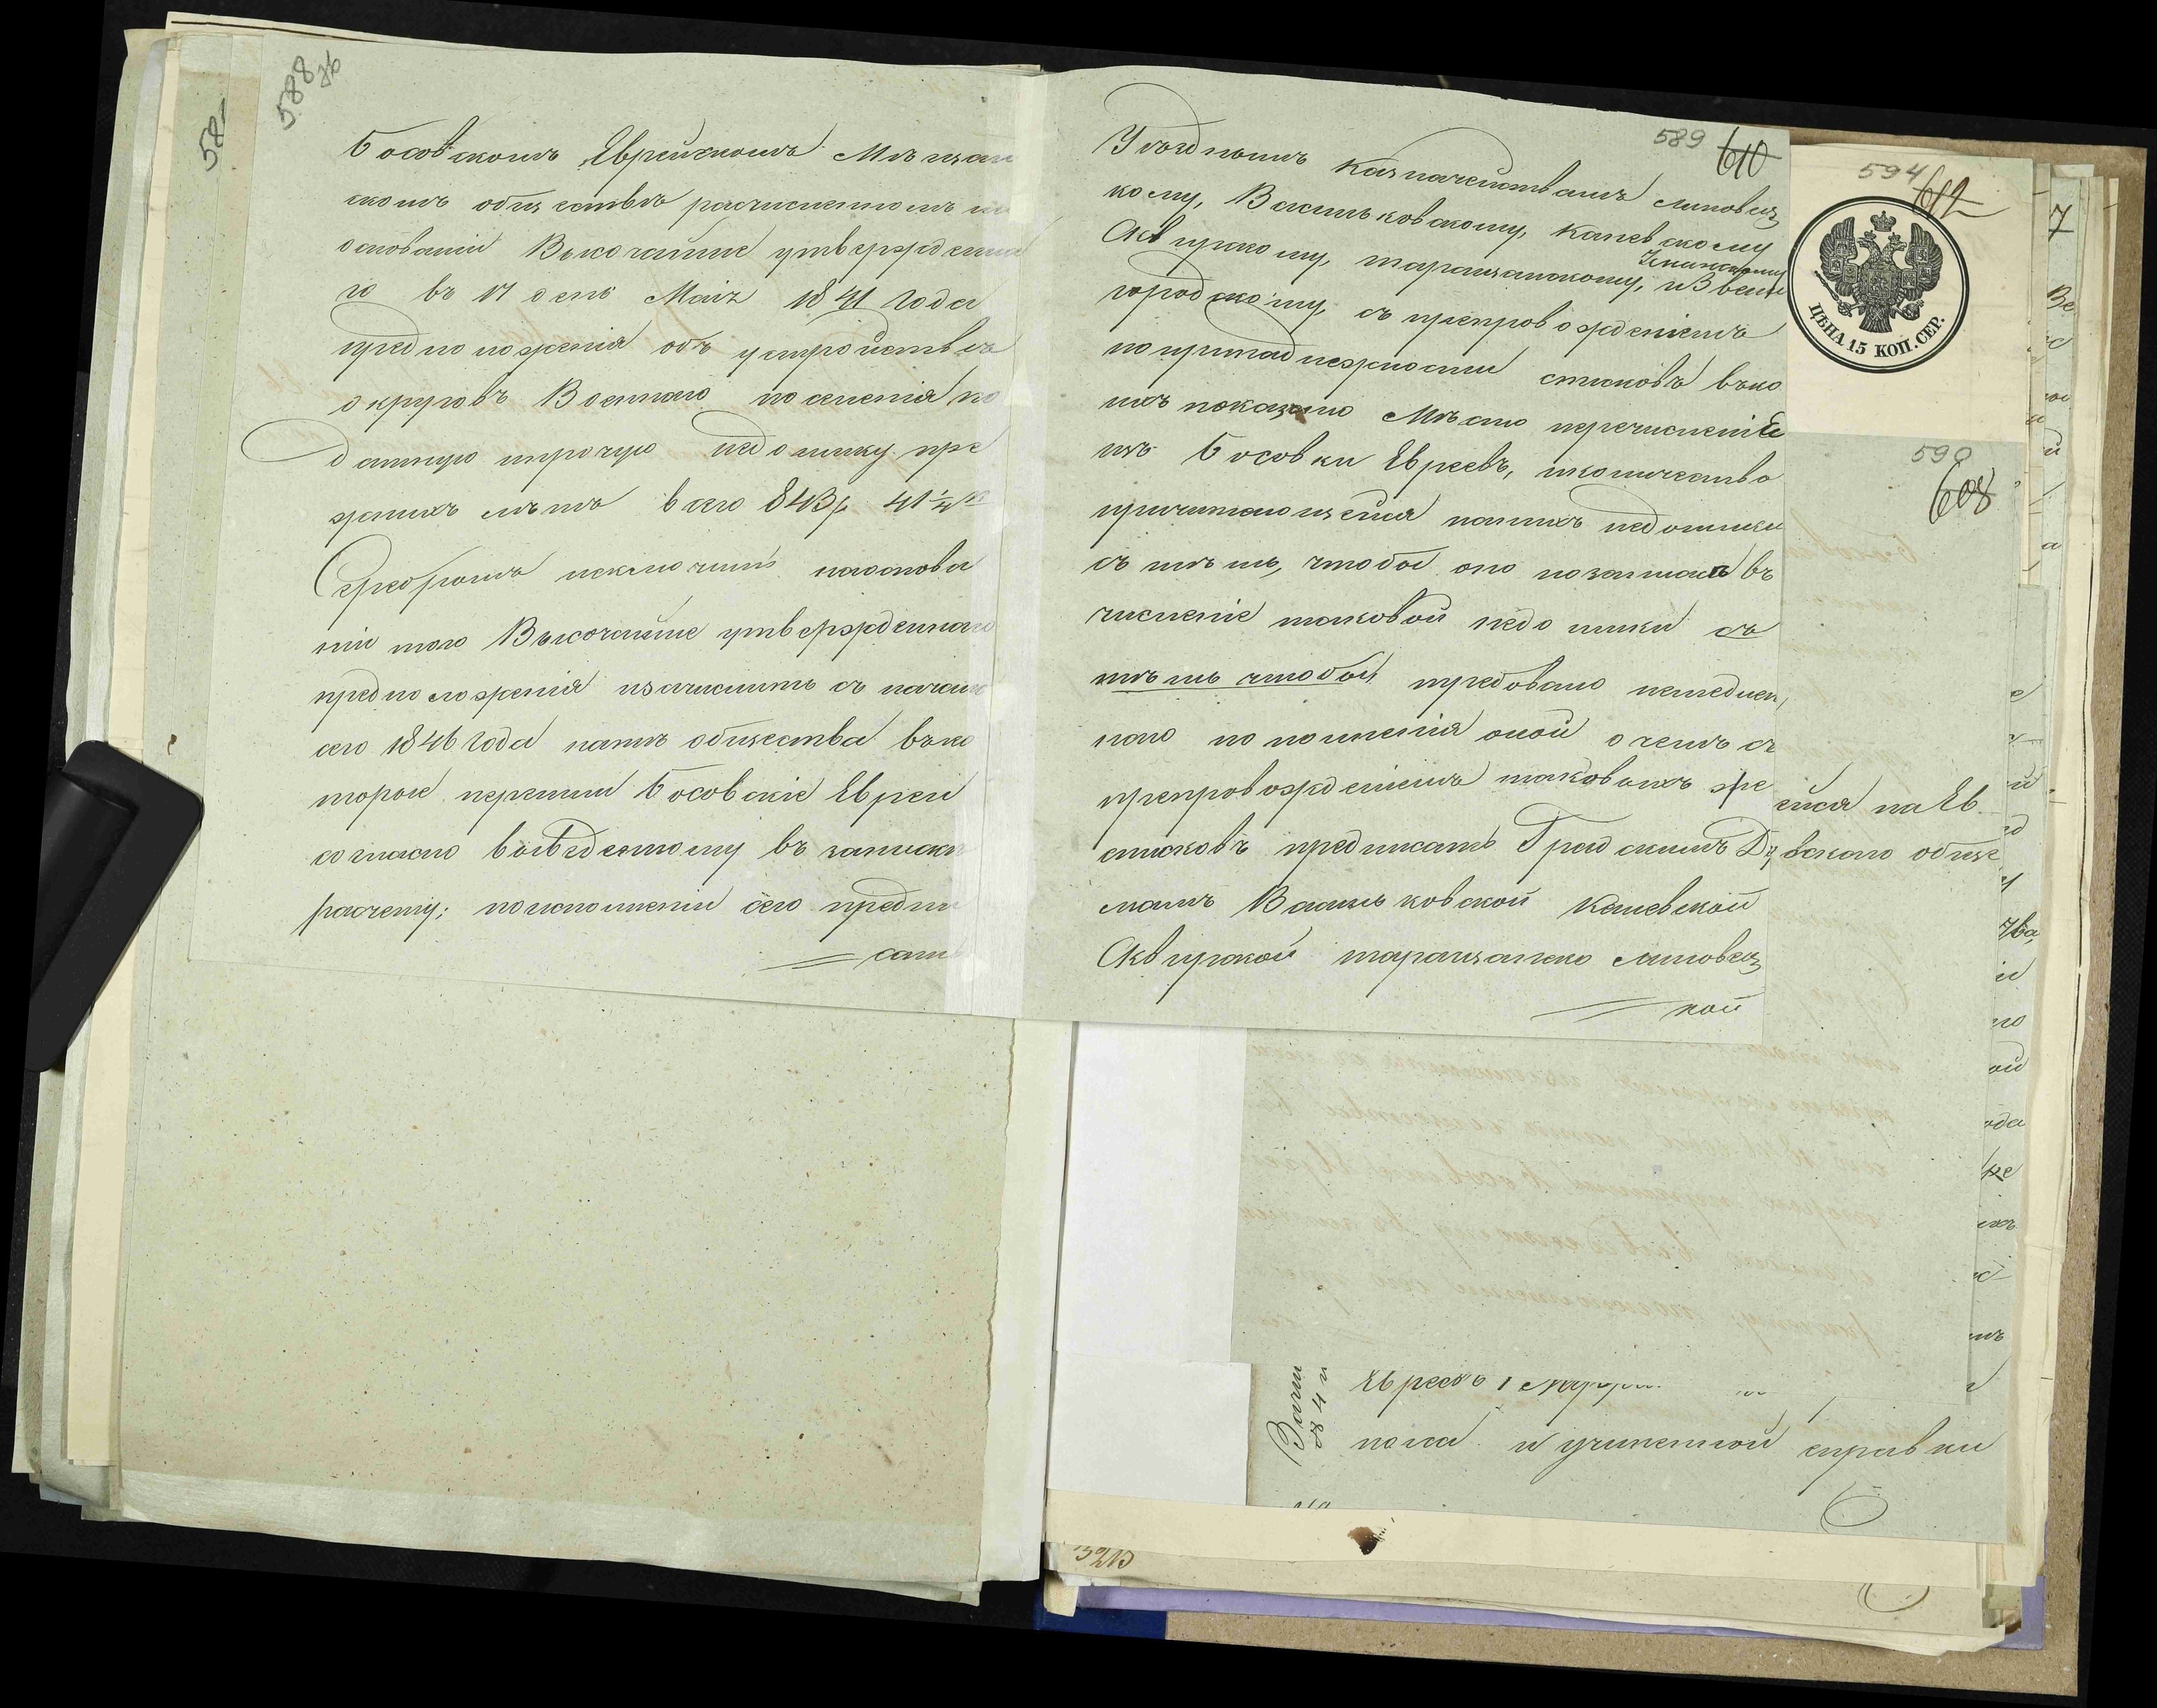 588
об
58
Босовскомъ Еврейскомъ Мѣщан
скомъ обществѣ расчисленномъ на
основаніи Высочайше утвержденна
го въ 17 день Маія 1841 года
предположенія объ устройствѣ
округовъ Военнаго поселенія по
датную и прочую недоимку пре
жнихъ лѣтъ всего 843 р 41 1/4 к
Серебромъ исключить на основа
ніи того Высочайше утвержденнаго
предположенія и зачислить съ начала
сего 1846 года на тѣ общества въ ко
торые перешли Босовскіе Евреи
согласно выведенному въ запискѣ
расчету; по исполненіи сего предпи
сать
589 610
Уѣзднымъ Казначействамъ Липовец
кому, Васильковскому, Каневскому
Уманскому
Сквирскому, Таращанскому, и Звени
городскому, съ препровожденіемъ
по принадлежности списковъ въ ко
ихъ показано Мѣсто перечисленіе
изъ Босовки Евреевъ, и количество
причитающейся на нихъ недоимки
съ тѣмъ, чтобы оно по записке въ
численіе таковой недоимки съ
тѣмъ чтобы требовано немедлен,
наго пополненія оной о чемъ съ
препровожденіемъ таковыхъ же
списковъ предписать Градскимъ Ду
мамъ Васильковской Каневской
Сквирской Таращанско Липовец
кой
594 612
ЦѢНА 15 КОП. СЕР.
590
608
ейся на Ев
вскаго обще
Евреевъ
пола и учиненной справки
7